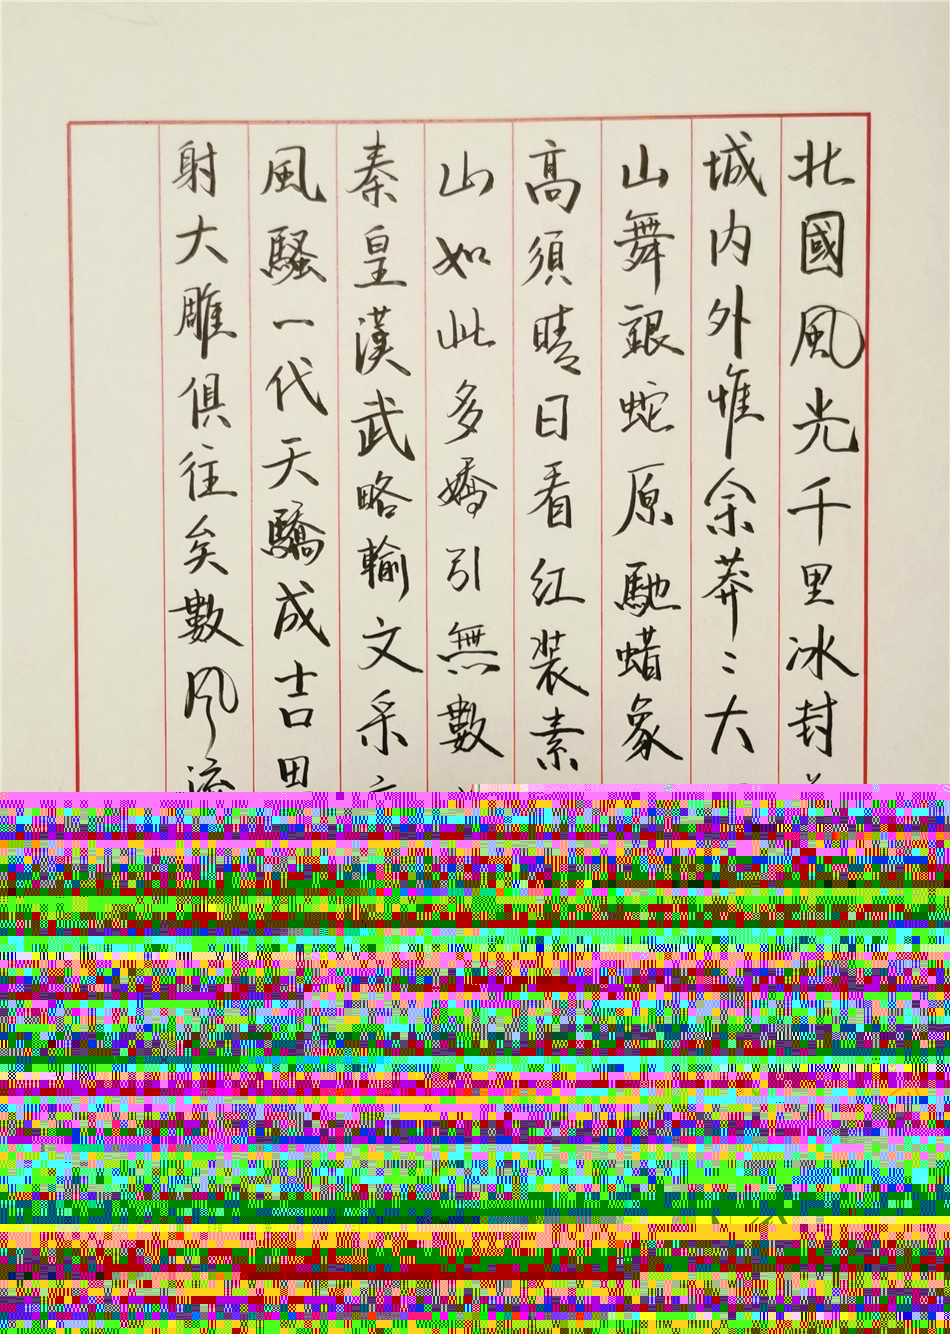 北國風光千里冰封
城内外惟余莽〻大
山舞銀蛇原馳蜡象
高須晴日看红装素
山如此多嬌引無數
秦皇漢武略輸文采
風騷一代天驕成吉思
射大雕俱往矣數风流